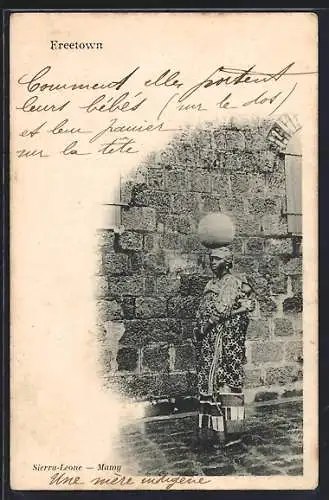 Freetown
Comment elles portent
leurs bébés (sur le dos)
et leur panier
sur la tete
Sierra-Leone — Mamy
Une mère indigène